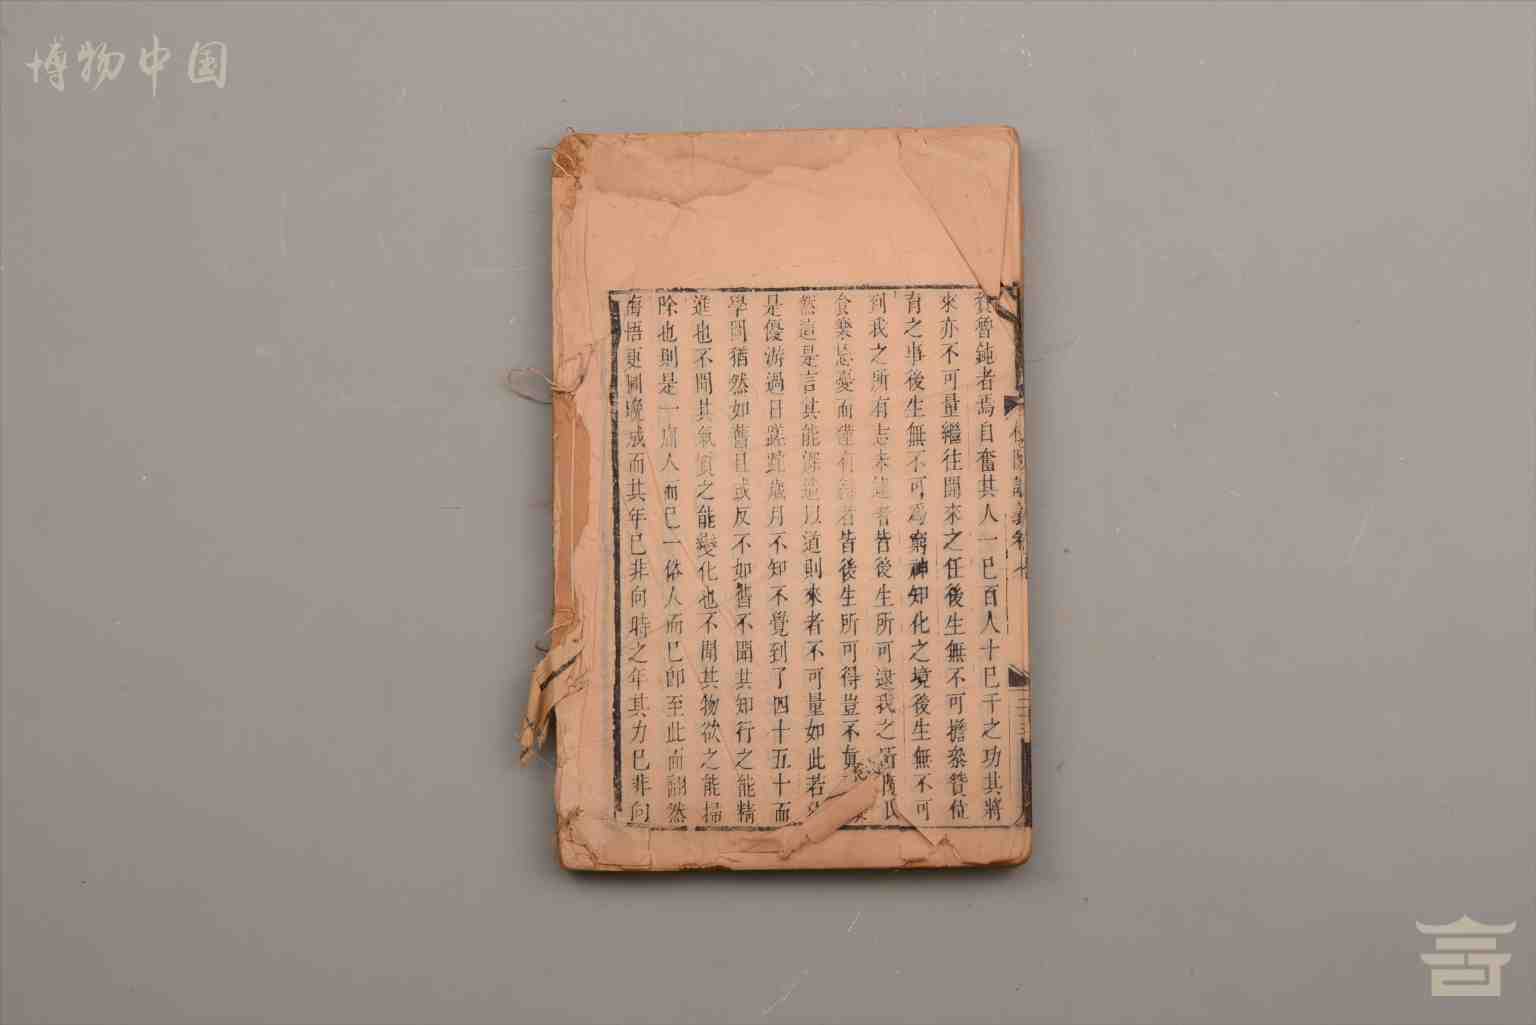 博物中国
魯鈍者焉自奮其人一己百人十己千之功其將
來亦不可量繼往開來之任後生無不可擔參贊位
育之事後生無不可爲窮神知化之境後生無不可
到我之所有志未逮者皆後生所可逮我之所
食樂忘憂而僅有者皆後生所可得豈不
然這是言其能深造以道則來者不可量如此若
是優游過日蹉跎歲月不知不覺到了四十五十而
學問猶然如舊且或反不如舊不聞其知行之能精
進也不聞其氣質之能變化也不聞其物欲之能掃
除也則是一庸人而已一俗人而已即至此而翻然
悔悟更圖晚成而其年已非向時之年其力已非向